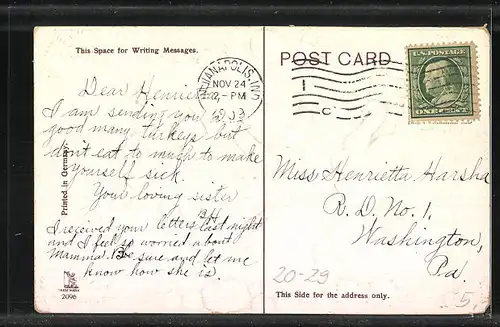 This Space for Writing Messages.
POST CARD
U.S. POSTAGE
ONE CENT
INDIANAPOLIS, IND.
NOV 24
-PM
Dear
I am sending you a
good many turkeys but
don't eat to much to make
yourself sick.
Your loving sister
I received your letters last night
and I feel so worried about
Mamma. Be sure and let me
know how she is.
Printed in Germany.
2096
Miss Henrietta Harsha
R. D. No. 1,
Washington,
Pa.
20-29
This Side for the address only.
5